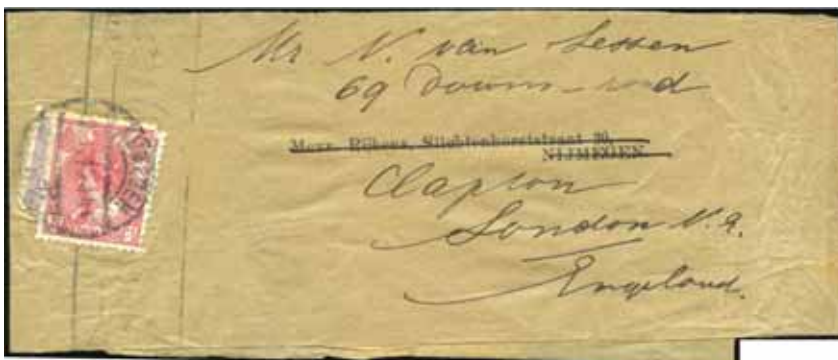 Mr N. van Lessen
69 Downs road
Mevr. Rijkens, Stichtenborststraat 30,
NIJMEGEN.
Clapton
London N.E.
Engeland.